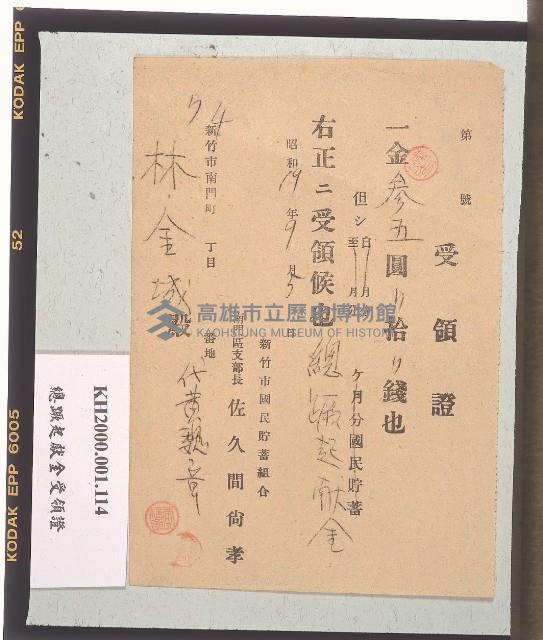 第 號
受領證
一金參五圓リ拾リ錢也
但シ自11月至11月 ケ月分國民貯蓄
總蹶起献金
右正ニ受領候也
昭和19年9月 日
新竹市國民貯蓄組合
南門區支部長 佐久間尚孝
新竹市南門町 丁目 番地
林金城殿
高雄市立歷史博物館
KAOHSIUNG MUSEUM OF HISTORY
KH2000.001.114
總蹶起献金受領證
KODAK EPP 6005
52
KODAK EPP 6